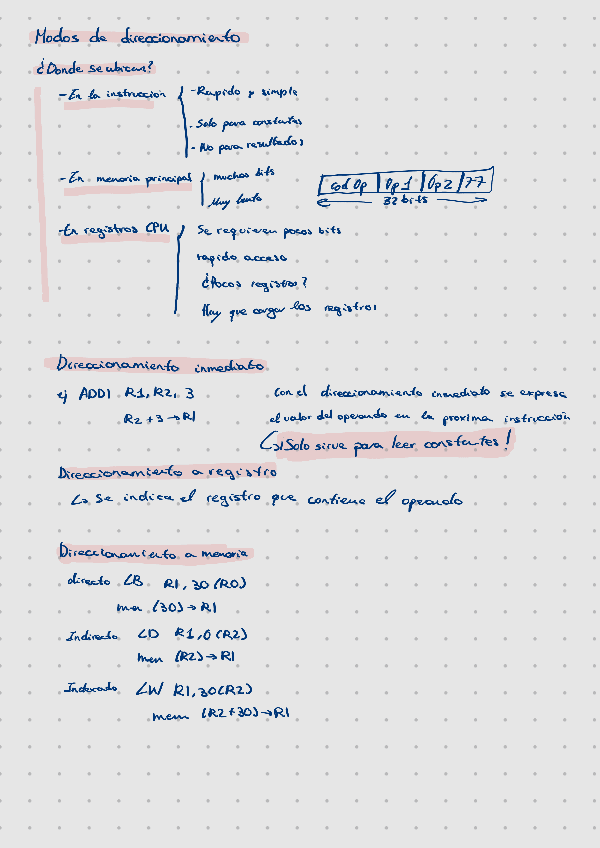 Modos de direccionamiento
¿Donde se ubican?
- En la instrucción
- Rapido y simple
- Solo para constantes
- No para resultados
- En memoria principal
muchos bits
Muy lento
cod Op | Op 1 | Op 2 | ??
32 bits
- En registros CPU
Se requieren pocos bits
rapido acceso
¿Pocos registros?
Hay que cargar los registros
Direccionamiento inmediato
ej ADDI R1, R2, 3
R2 + 3 → R1
Con el direccionamiento inmediato se expresa
el valor del operando en la proxima instrucción
↳ ¡Solo sirve para leer constantes!
Direccionamiento a registro
↳ Se indica el registro que contiene el operando
Direccionamiento a memoria
directo LB R1, 30 (R0)
mem (30) → R1
Indirecto LD R1, 0 (R2)
mem (R2) → R1
Indexado LW R1, 30(R2)
mem (R2+30) → R1